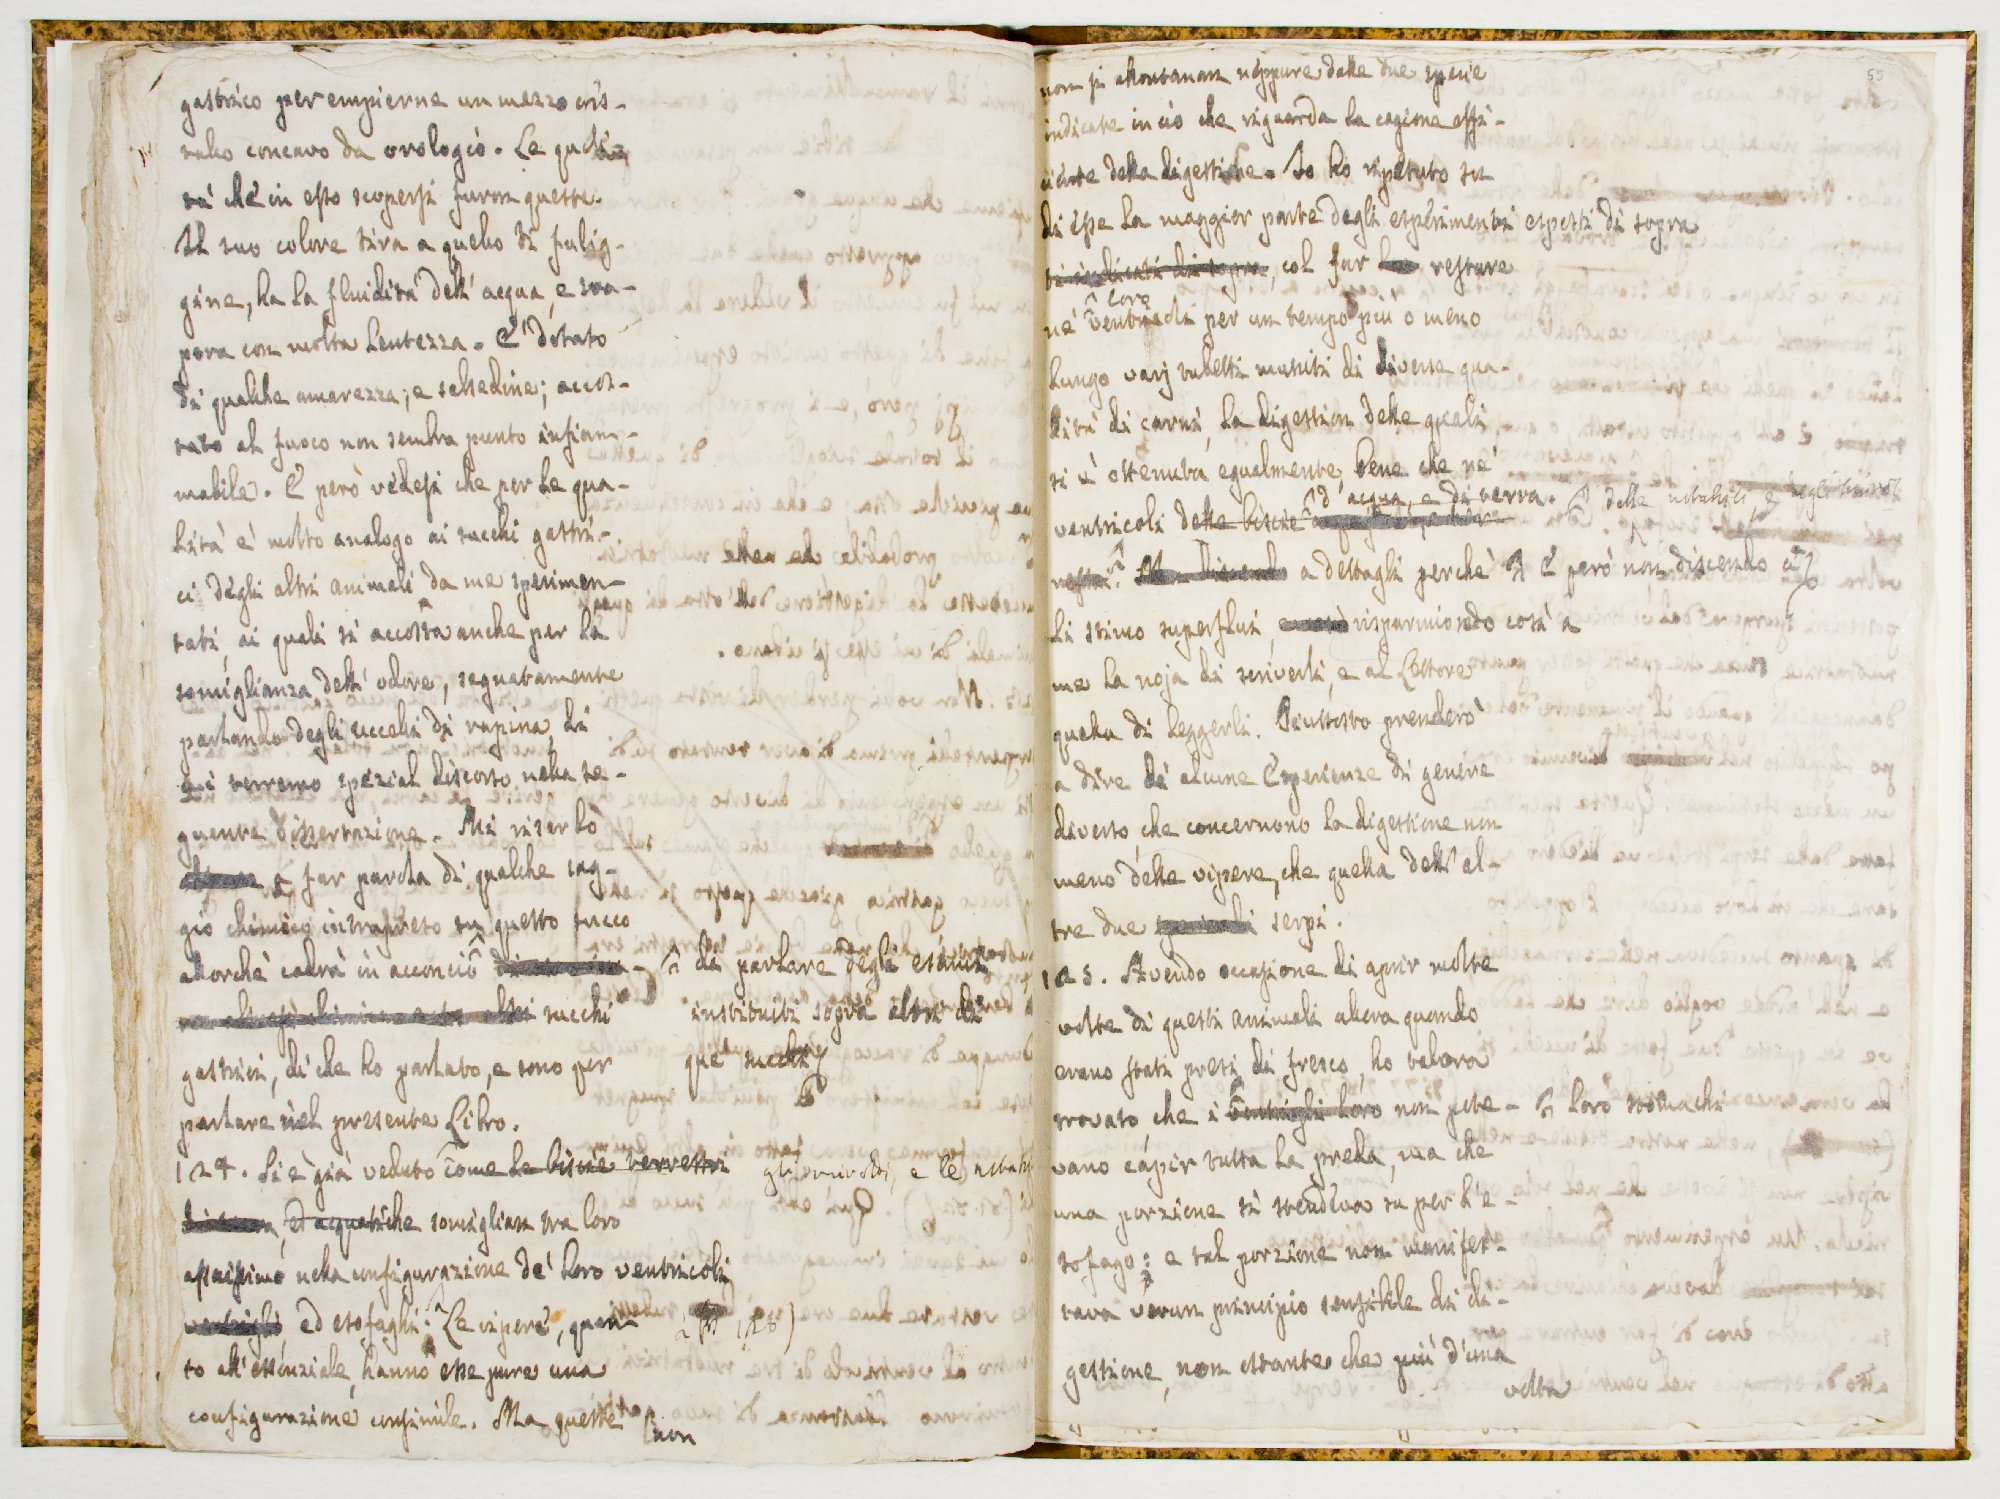 gastrico per empierne un mezzo cris-
tallo concavo da orologio. Le quali-
tà che in esso scopersi furon queste.
Il suo colore tira a quello di fulig-
gine, ha la fluidità dell' acqua, e sva-
pora con molta lentezza. E' dotato
di qualche amarezza, e salsedine; accos-
tato al fuoco non sembra punto infiam-
mabile. E però vedesi che per le qua-
lità è molto analogo ai succhi gastri-
ci degli altri animali da me sperimen-
tati, ai quali si accosta anche per la
somiglianza dell' odore, segnatamente
parlando degli uccelli di rapina, di
cui terremo spezial discorso nella se-
guente dissertazione. Mi riserbo
a far parola di qualche sag-
gio chimico intrapreso su questo succo
allorchè cadrà in acconcio
di parlare degli esami
instituiti sopra altri di
que' succhi
succhi
gastrici, di che ho parlato, e sono per
parlare nel presente Libro.
124. Si è già veduto come le biscie terrestri
gli
e le
ed acquatiche somiglian tra loro
assaissimo nella configurazione de' loro ventricoli
ed esofaghi. Le vipere, quan-
to all' essenziale, hanno esse pure una
configurazione consimile. Ma queste
non
55
non si allontanan neppure dalle due specie
indicate in ciò che riguarda la cagione effi-
ciente della digestione. Io ho ripetuto su
di esse la maggior parte degli esperimenti esposti di sopra
ti indicati di sopra, col far restare
loro
ne' ventricoli per un tempo più o meno
lungo varj tubetti muniti di diverse qua-
lità di carni, la digestion delle quali
si è ottenuta egualmente bene che ne'
d' acqua, e di terra.
delle
e degli
ventricoli delle biscie
Ma Discendo a dettagli perchè È però non discendo a
li stimo superflui, risparmiando così a
me la noja di scriverli, e al Lettore
quella di leggerli. Piuttosto prenderò
a dire di alcune Esperienze di genere
diverso, che concernono la digestione non
meno delle vipere, che quella dell' al-
tre due serpi.
125. Avendo occasione di aprir molte
volte di questi animali allora quando
erano stati presi di fresco, ho talora
trovato, che i ventrigli loro non pote-
loro stomachi
vano capir tutta la preda, ma che
una porzione si stendeva su per l'e-
sofago: e tal porzione non manifes-
tava verun principio sensibile di di-
gestione, non ostante che più d'una
volta